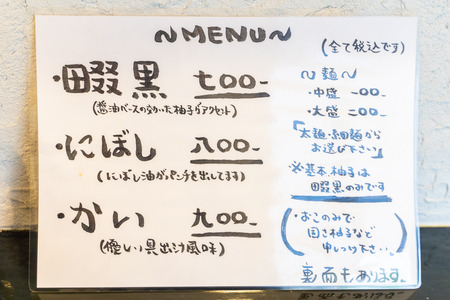 〜MENU〜
(全て税込です)
・畷黒 七〇〇-
(醤油ベースの効いた柚子がアクセント)
・にぼし 八〇〇-
(にぼし油がパンチを出してます)
・かい 九〇〇-
(優しい貝出汁風味)
〜麺〜
・中盛 一〇〇-
・大盛 二〇〇-
「太麺・細麺から
お選び下さい」
※基本柚子は
畷黒のみです
(おこのみで
固さ柚子など
申しつけ下さい。)
裏面もあります。